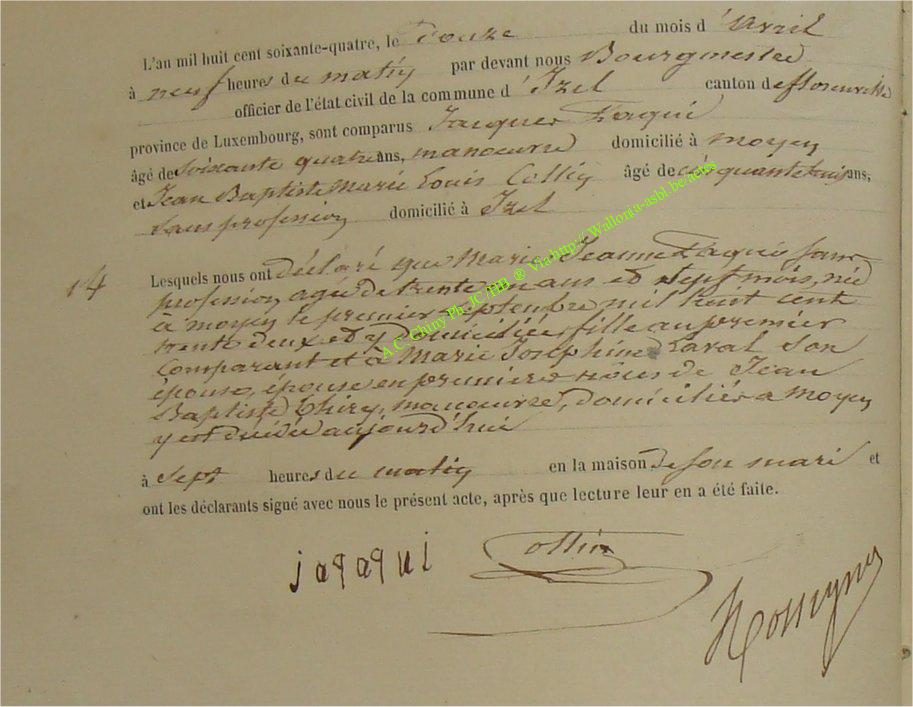 L'an mil huit cent soixante-quatre, le douze du mois d'avril
à neuf heures du matin par devant nous Bourgmestre
officier de l'état civil de la commune d'Izel canton de florenville
province de Luxembourg, sont comparus Jacques
âgé de soixante quatre ans, manoeuvre domicilié à moyen
et Jean Baptiste Marie Louis Collin âgé de cinquante trois ans,
sans profession domicilié à Izel
14 Lesquels nous ont déclaré que Marie Jeanne sans
profession, agée de trente un ans et sept mois, née
à moyen le premier septembre mil huit cent
trente deux et y domiciliée, fille au premier
Comparant et à Marie Josephine Laval son
épouse, épouse en premières nôces de Jean
Baptiste Thiry, manoeuvre, domiciliés a moyen
y est décédée aujourd'hui
à sept heures du matin en la maison de son mari et
ont les déclarants signé avec nous le présent acte, après que lecture leur en a été faite.
j aqaqui Collin
A.C. Chiny Ph. JC/HB ® Via http://Wallonia-asbl.be/actes